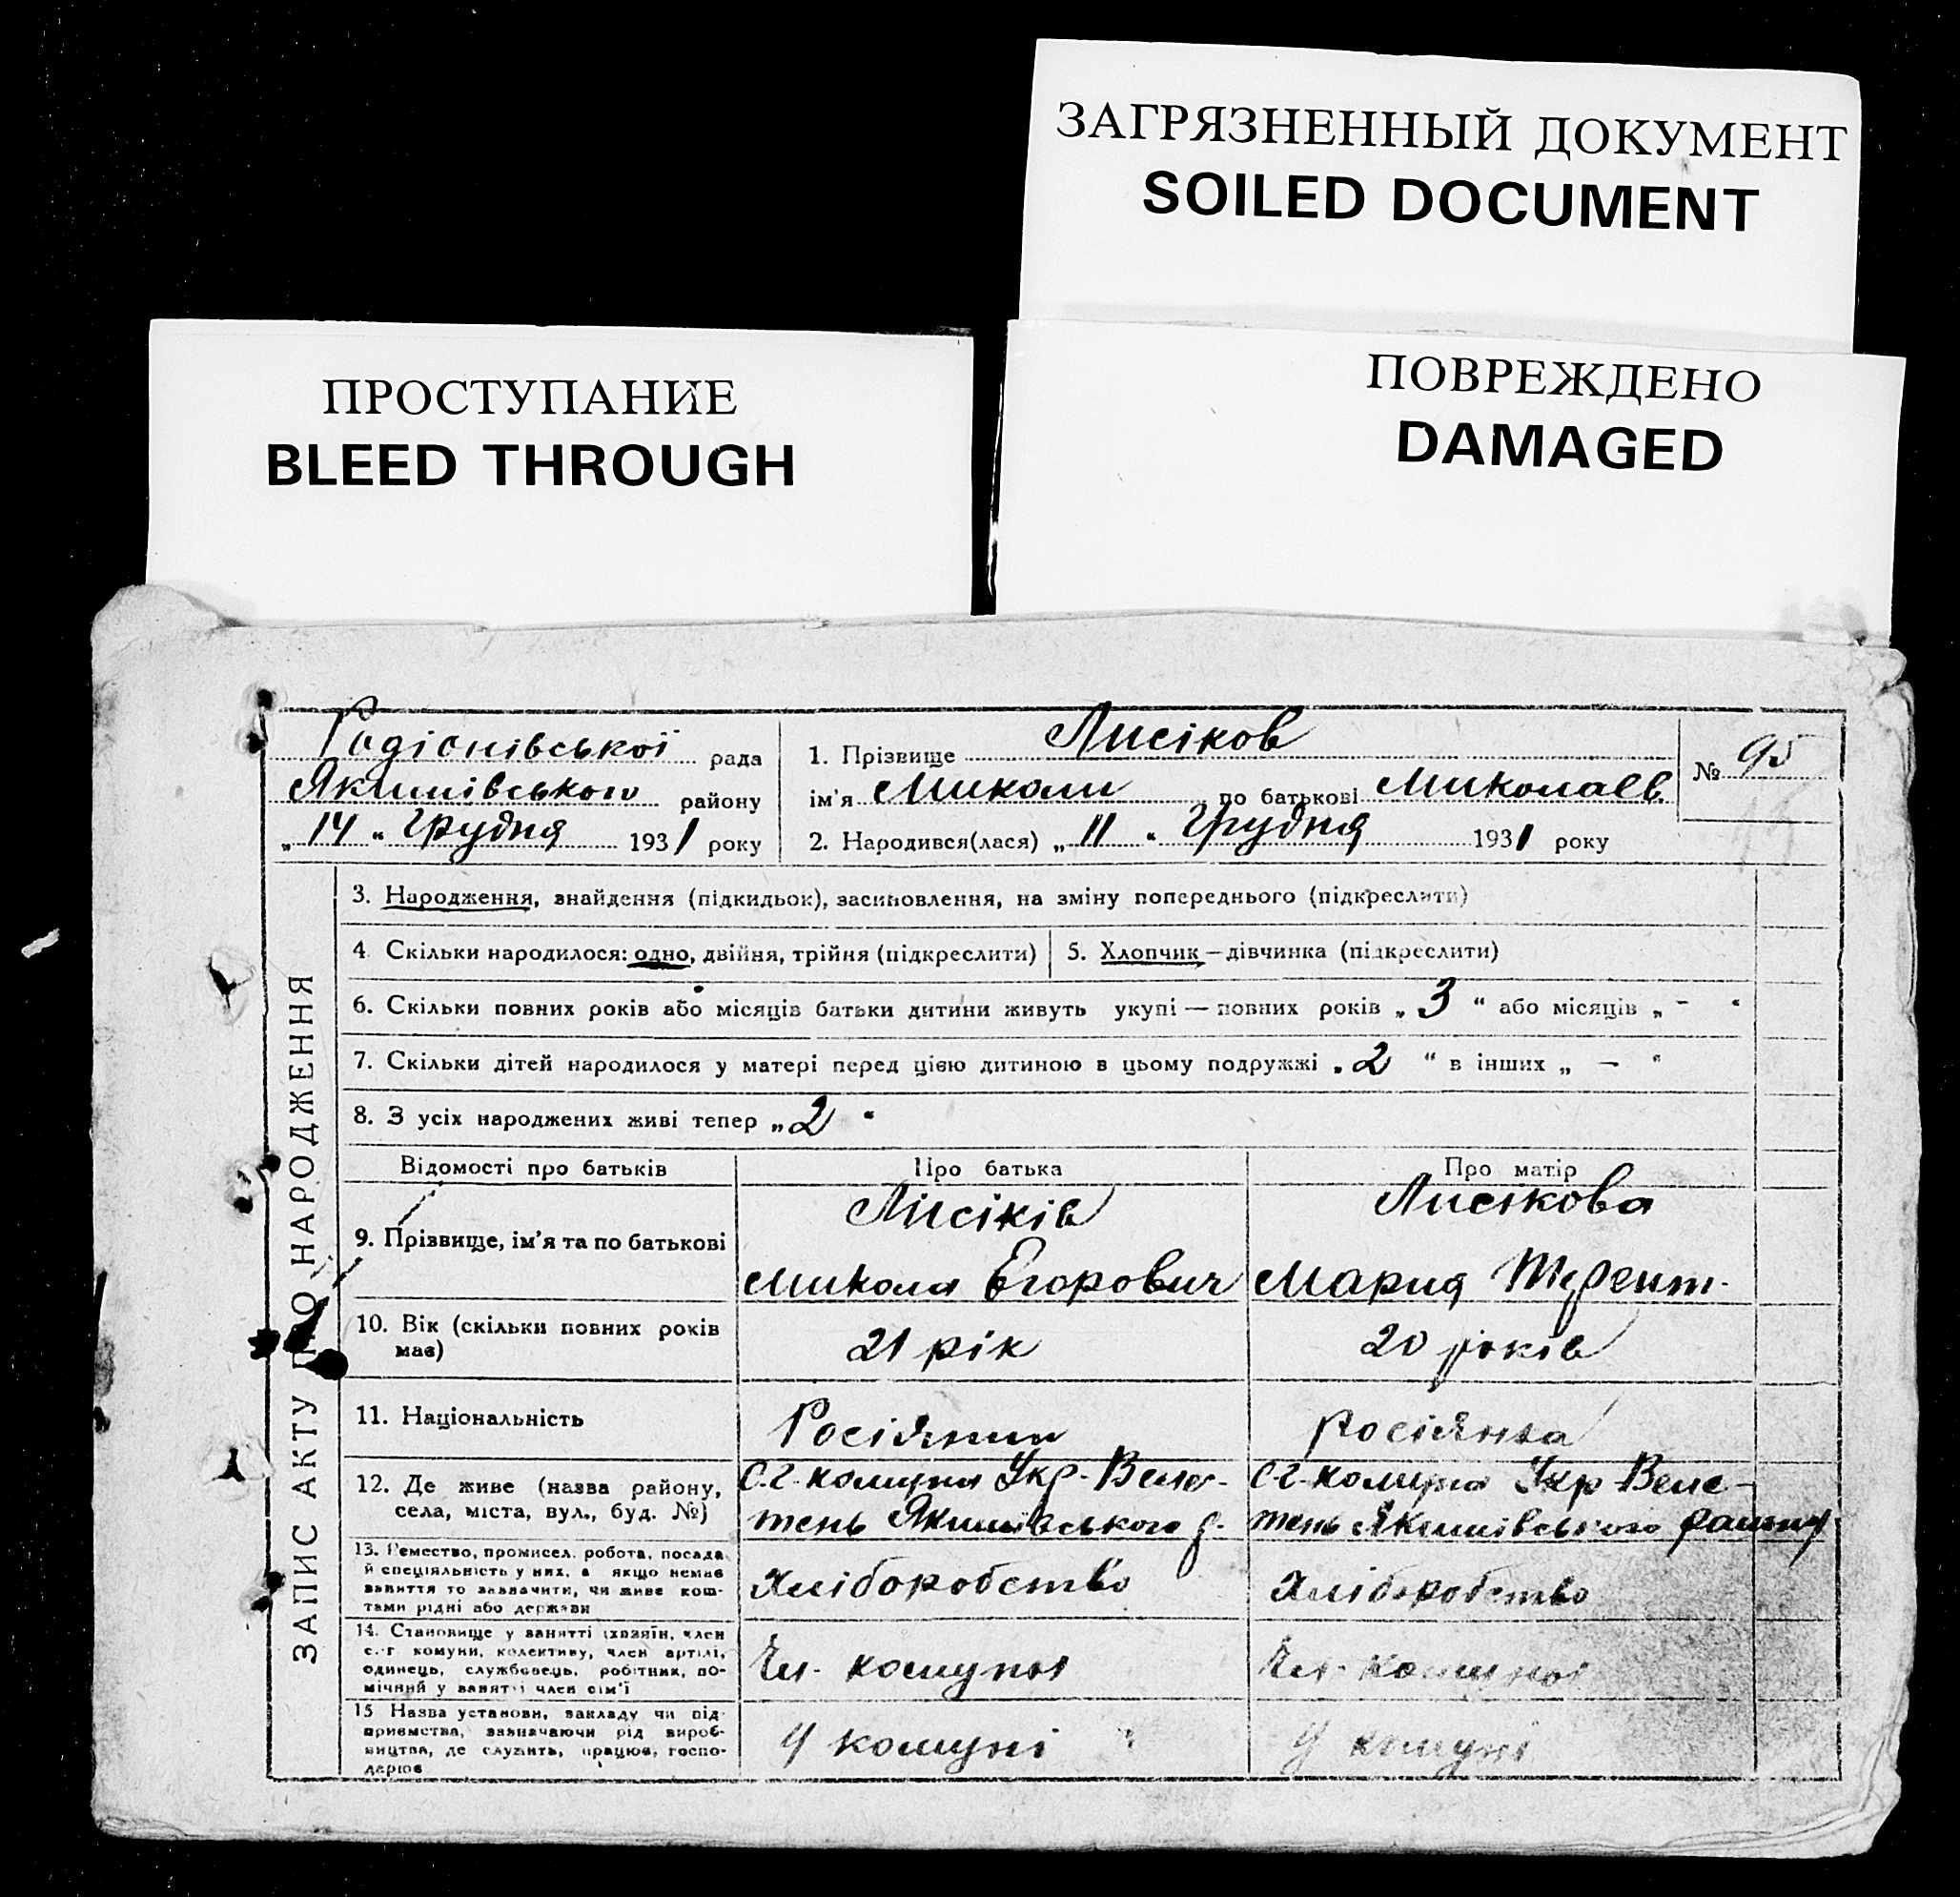 ЗАГРЯЗНЕННЫЙ ДОКУМЕНТ
SOILED DOCUMENT
ПРОСТУПАНИЕ
BLEED THROUGH
ПОВРЕЖДЕНО
DAMAGED
Родіонівської рада
Якимівського району
„ 14 " Грудня 1931 року
1. Прізвище Лисіков
ім'я Микола по батькові Миколаєв.
2. Народився(лася) „ 11 " Грудня 1931 року
№ 95
ЗАПИС АКТУ ПРО НАРОДЖЕННЯ
3. Народження, знайдення (підкидьок), засиновлення, на зміну попереднього (підкреслити)
4 Скільки народилося: одно, двійня, трійня (підкреслити)
5. Хлопчик — дівчинка (підкреслити)
6. Скільки повних років або місяців батьки дитини живуть укупі — повних років „ 3 " або місяців „ - "
7. Скільки дітей народилося у матері перед цією дитиною в цьому подружжі „ 2 " в інших „ — "
8. З усіх народжених живі тепер „ 2 "
Відомості про батьків
Про батька
Про матір
9. Прізвище, ім'я та по батькові
Лисіків
Микола Егорович
Лисікова
Мария Терент.
10. Вік (скільки повних років
має)
21 рік
20 років
11. Національність
Росіянин
росіянка
12. Де живе (назва району,
села, міста, вул., буд. №)
С.г. комуна Укр.
тень Якимівського р.
С.г. комуна Укр
тень Якимівського району
13. Ремество, промисел, робота, посада
й спеціяльність у них, а якщо немає
заняття то зазначити, чи живе кош-
тами рідні або держави
Хліборобство
Хліборобство
14. Становище у занятті (хазяїн, член
с.-г комуни, колективу, член артілі,
одинець, службовець, робітник, по-
мічний у занятті член сім'ї
Чл. комуни
Чл. комуни
15 Назва установи, закладу чи під-
приємства, зазначаючи рід вироб-
ництва, де служить, працює, госпо-
дарює
У комуні
У комуні